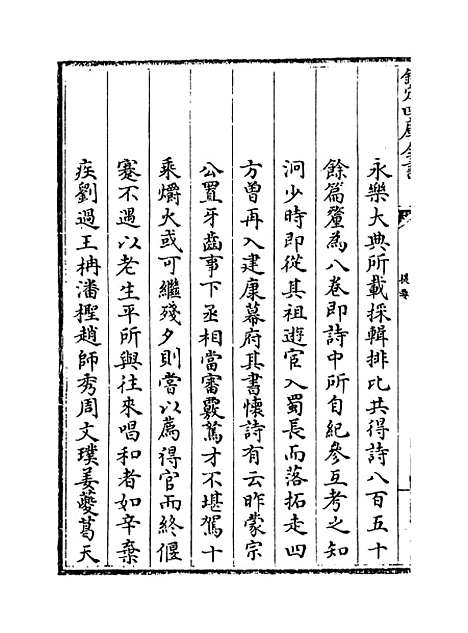 欽定四庫全書
提要
永樂大典所載採輯排比共得詩八百五十
餘篇釐為八卷即詩中所自紀參互考之知
泂少時即從其祖遊宦入蜀長而落拓走四
方曽再入建康幕府其書懷詩有云昨蒙宗
公置牙齒事下丞相當審覈駑才不堪駕十
乘爝火或可繼殘夕則嘗以薦得官而終偃
蹇不遇以老生平所與往來唱和者如辛棄
疾劉過王柟潘檉趙師秀周文璞姜夔葛天